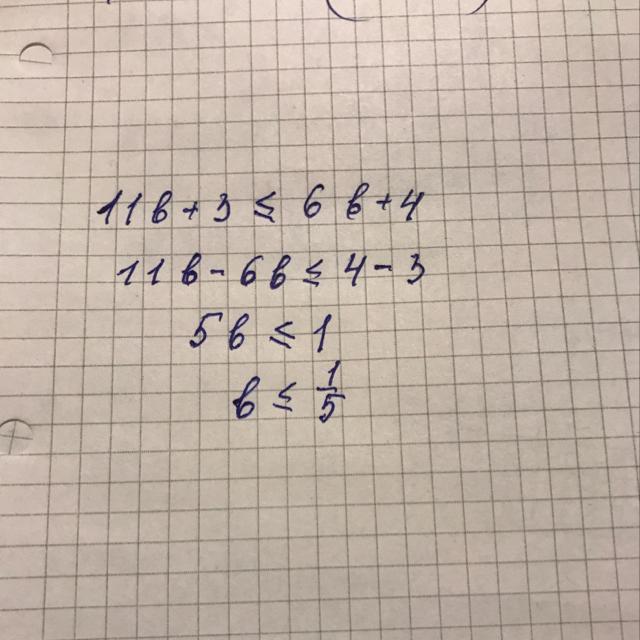 11b+3 ≤ 6b+4
11b-6b ≤ 4-3
5b ≤ 1
b ≤ 1/5